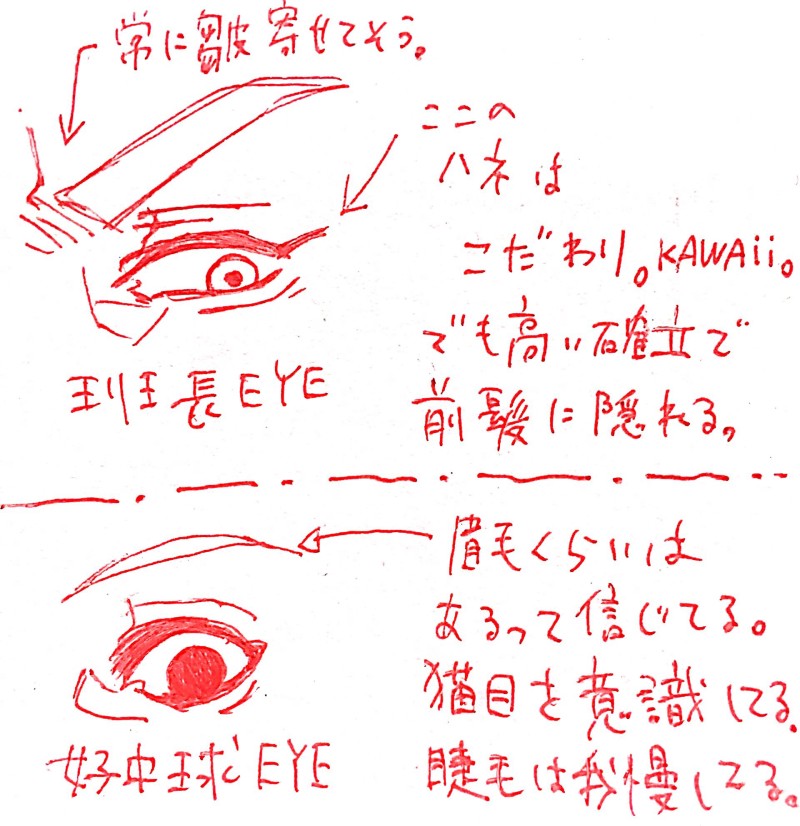 常に皺寄せてそう。
ここの
ハネは
こだわり。KAWAii。
でも高い確立で
前髪に隠れる。
班長EYE
眉毛くらいは
あるって信じてる。
猫目を意識してる。
睫毛は我慢してる。
好中球EYE